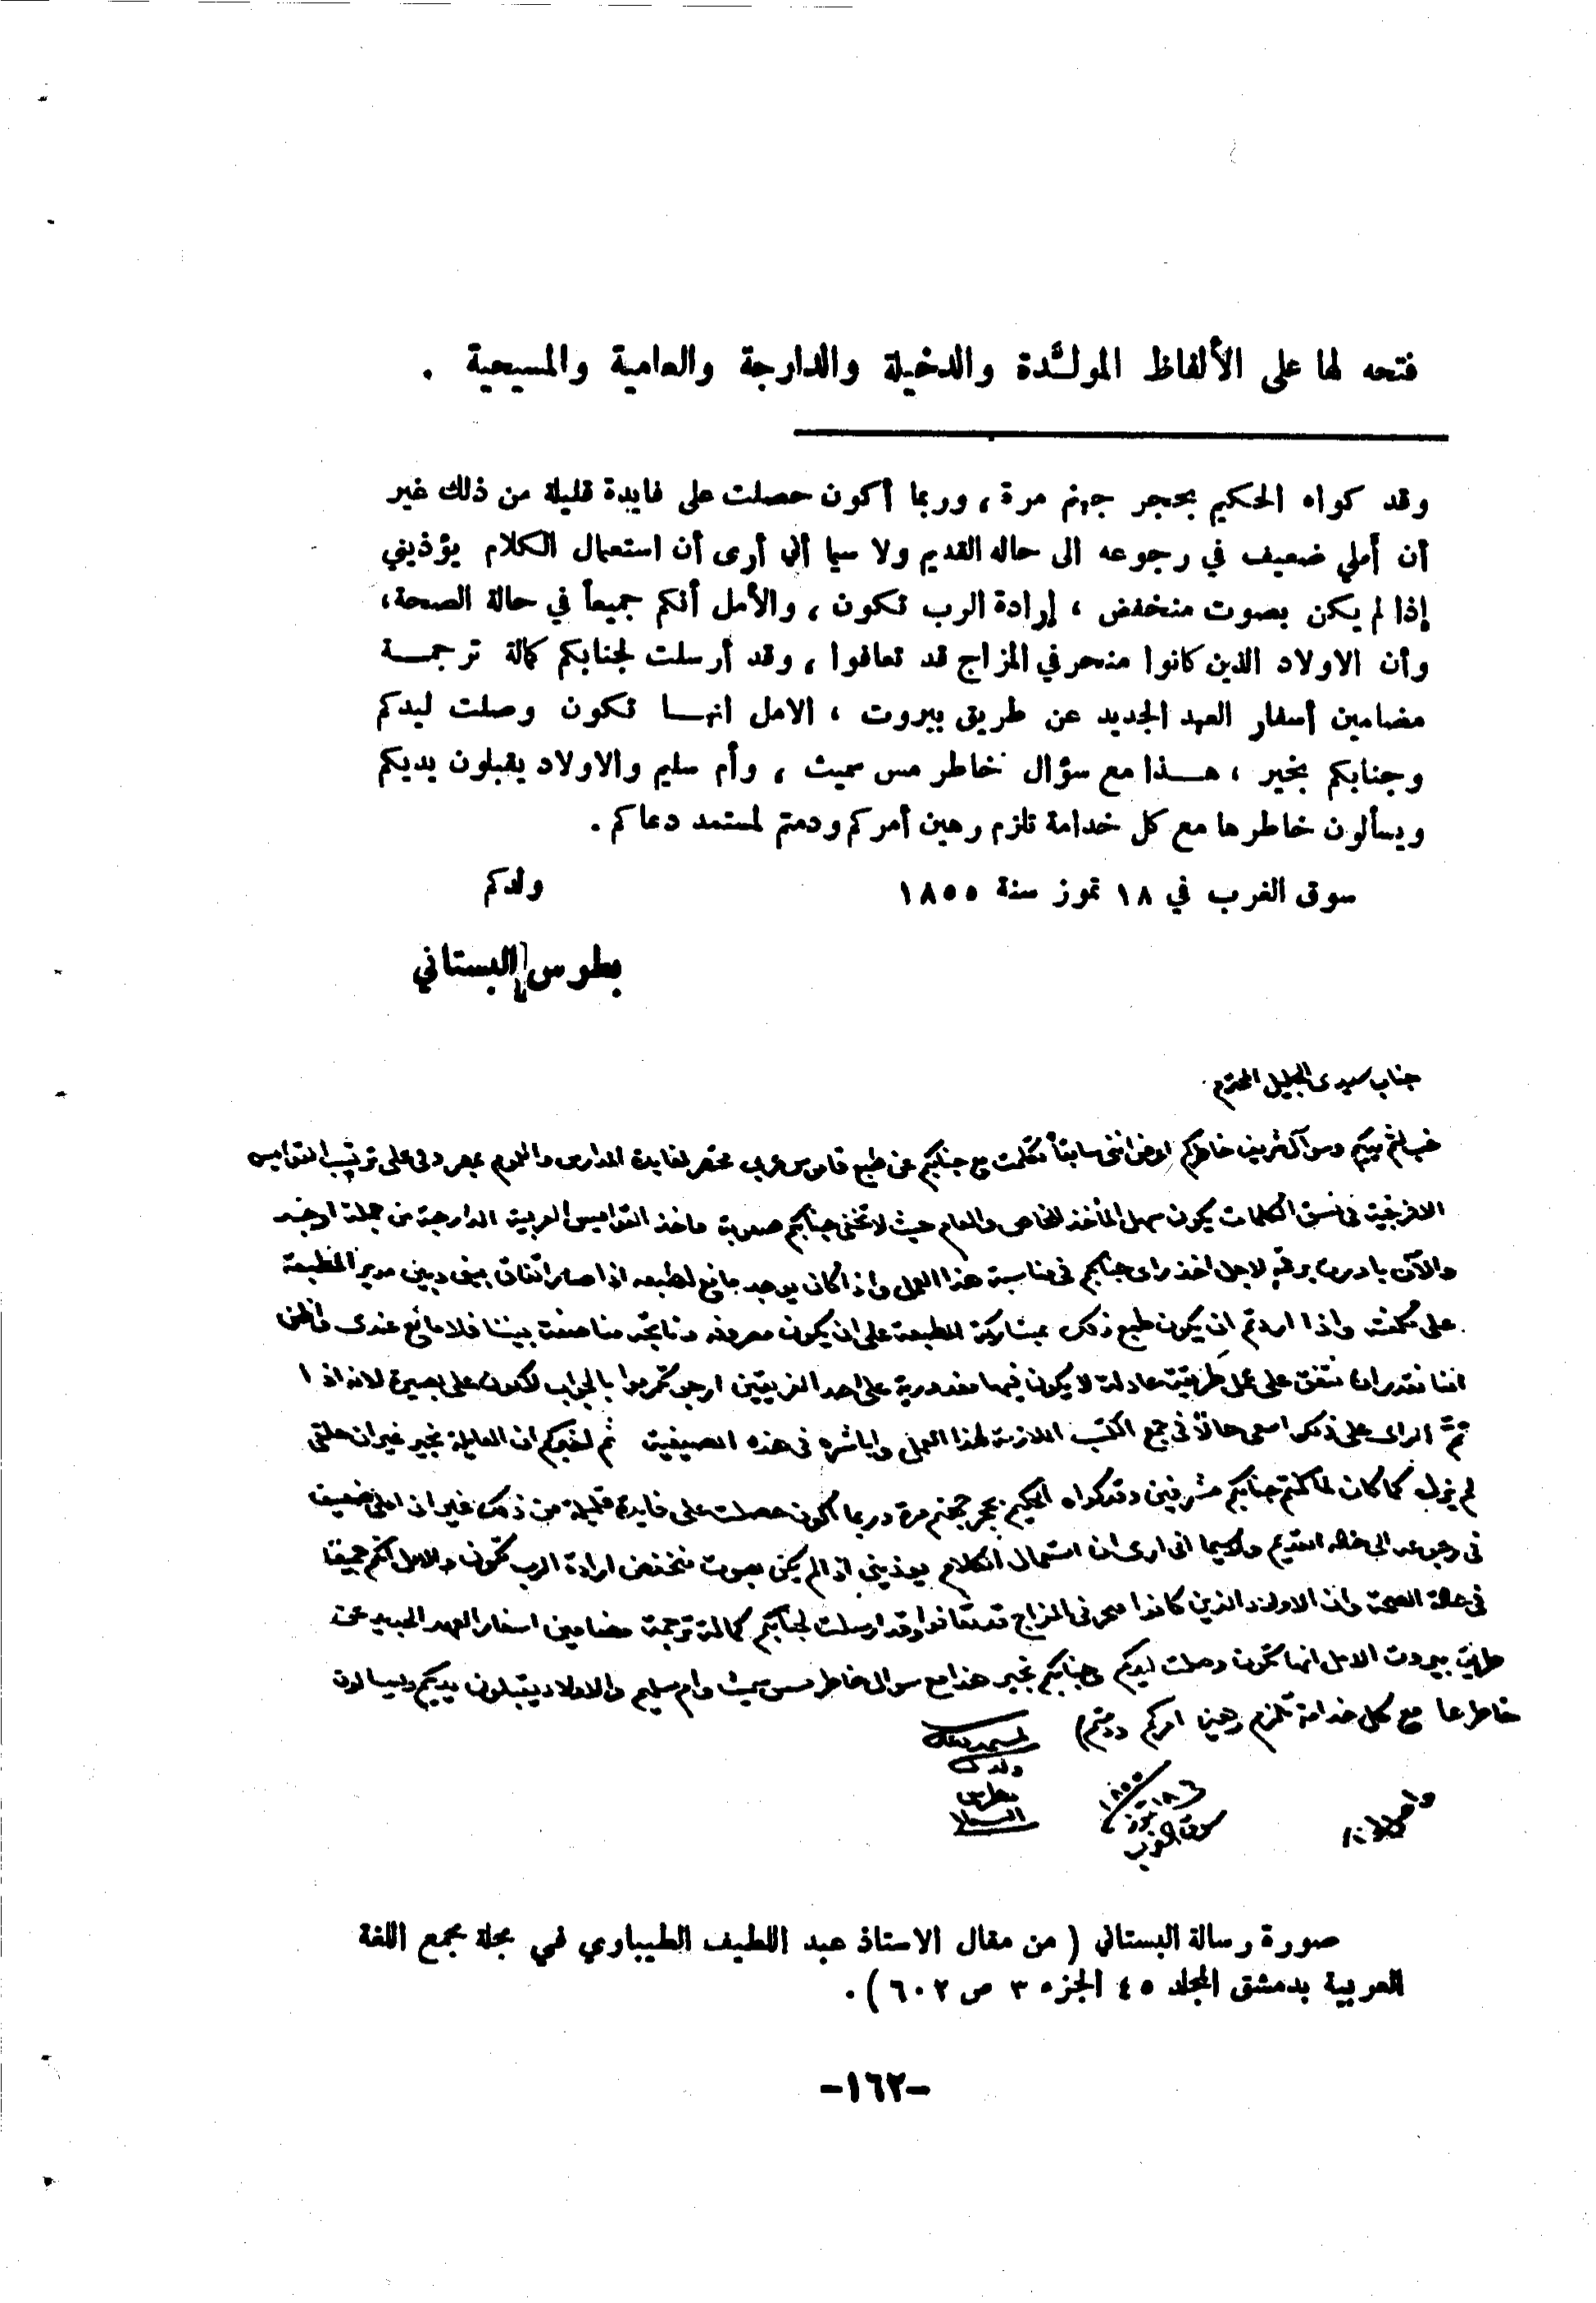 فتحه لها على الألفاظ المولَّدة والدخيلة والدارجة والعامية والمسيحية .
وقد كواه الحكيم بحجر جهنم مرة ، وربما أكون حصلت على فايدة قليلة من ذلك غير
أن أملي ضعيف في رجوعه الى حاله القديم ولا سيما أني أرى أن استعمال الكلام يؤذيني
إذا لم يكن بصوت منخفض ، إرادة الرب تكون ، والأمل أنكم جميعاً في حالة الصحة،
وأن الاولاد الذين كانوا منحرفي المزاج قد تعافوا ، وقد أرسلت لجنابكم كمالة ترجمــة
مضامين أسفار العهد الجديد عن طريق بيروت ، الامل انهــا تكون وصلت ليدكم
وجنابكم بخير ، هــذا مع سؤال خاطر مس سميث ، وأم سليم والاولاد يقبلون يديكم
ويسألون خاطرها مع كل خدامة تلزم رهين أمركم ودمتم لمستمد دعاكم .
سوق الغرب في ١٨ تموز سنة ١٨٥٥
ولدكم
بطرس البستاني
جناب سيدى الجليل المحترم
غب لثم يديكم وسوال شريف خاطركم اعرض انني سابقاً تكلمت مع جنابكم عن طبع قاموس عربي مختصر لفايدة المدارس والعموم بحروف على ترتيب القواميس
الافرنجية في نسق الكلمات يكون سهل المأخذ للخاص والعام حيث لا تخفى جنابكم صعوبة ماخذ القواميس العربية الدارجة من جملة اوجه
والآن بادرت برقمه لاجل اخذ راى جنابكم في مناسبة هذا العمل واذا كان يوجد مانع لطبعه اذا صار اتفاق بيني وبين مدير المطبعة
على كلفته واذا اردتم ان يكون طبع ذلك بمشاركة المطبعة على ان يكون مصروفه وناتجه مناصفة بيننا فلا مانع عندى واظن
اننا نقدر ان نتفق على عمل طريقة عادلة لا يكون فيها مغدورية على احد الفريقين ارجو تكرموا بالجواب لاكون على بصيرة لانه اذا
تمّ الراى على ذلك اسعى حالاً في جمع الكتب اللازمة لهذا العمل واباشره في هذه الصيفية ثم اخبركم ان العايلة بخير غير ان حلقي
لم يزل كما كان لما كنتم جنابكم مشرفين وقد كواه الحكيم بحجر جهنم مرة وربما اكون حصلت على فايدة قليلة من ذلك غير ان املي ضعيف
في رجوعه الى حاله القديم ولاسيما اني ارى ان استعمال الكلام يوذيني اذا لم يكن بصوت منخفض ارادة الرب تكون والامل انكم جميعا
في حالة الصحة وان الاولاد الذين كانوا منحرفي المزاج قد تعافوا وقد ارسلت لجنابكم كمالة ترجمة مضامين اسفار العهد الجديد عن
طريق بيروت الامل انها تكون وصلت ليدكم وجنابكم بخير هذا مع سوال خاطر مس سميث وام سليم والاولاد يقبلون يديكم ويسالون
خاطرها مع كل خدامة تلزم رهين امركم ودمتم
لمستمد دعاكم
ولدكم
بطرس
في ١٨ تموز ١٨٥٥
سوق الغرب
صورة رسالة البستاني ( من مقال الاستاذ عبد اللطيف الطيباوي في مجلة مجمع اللغة
العربية بدمشق المجلد ٤٥ الجزء ٣ ص ٦٠٢ ) .
-١٦٢-